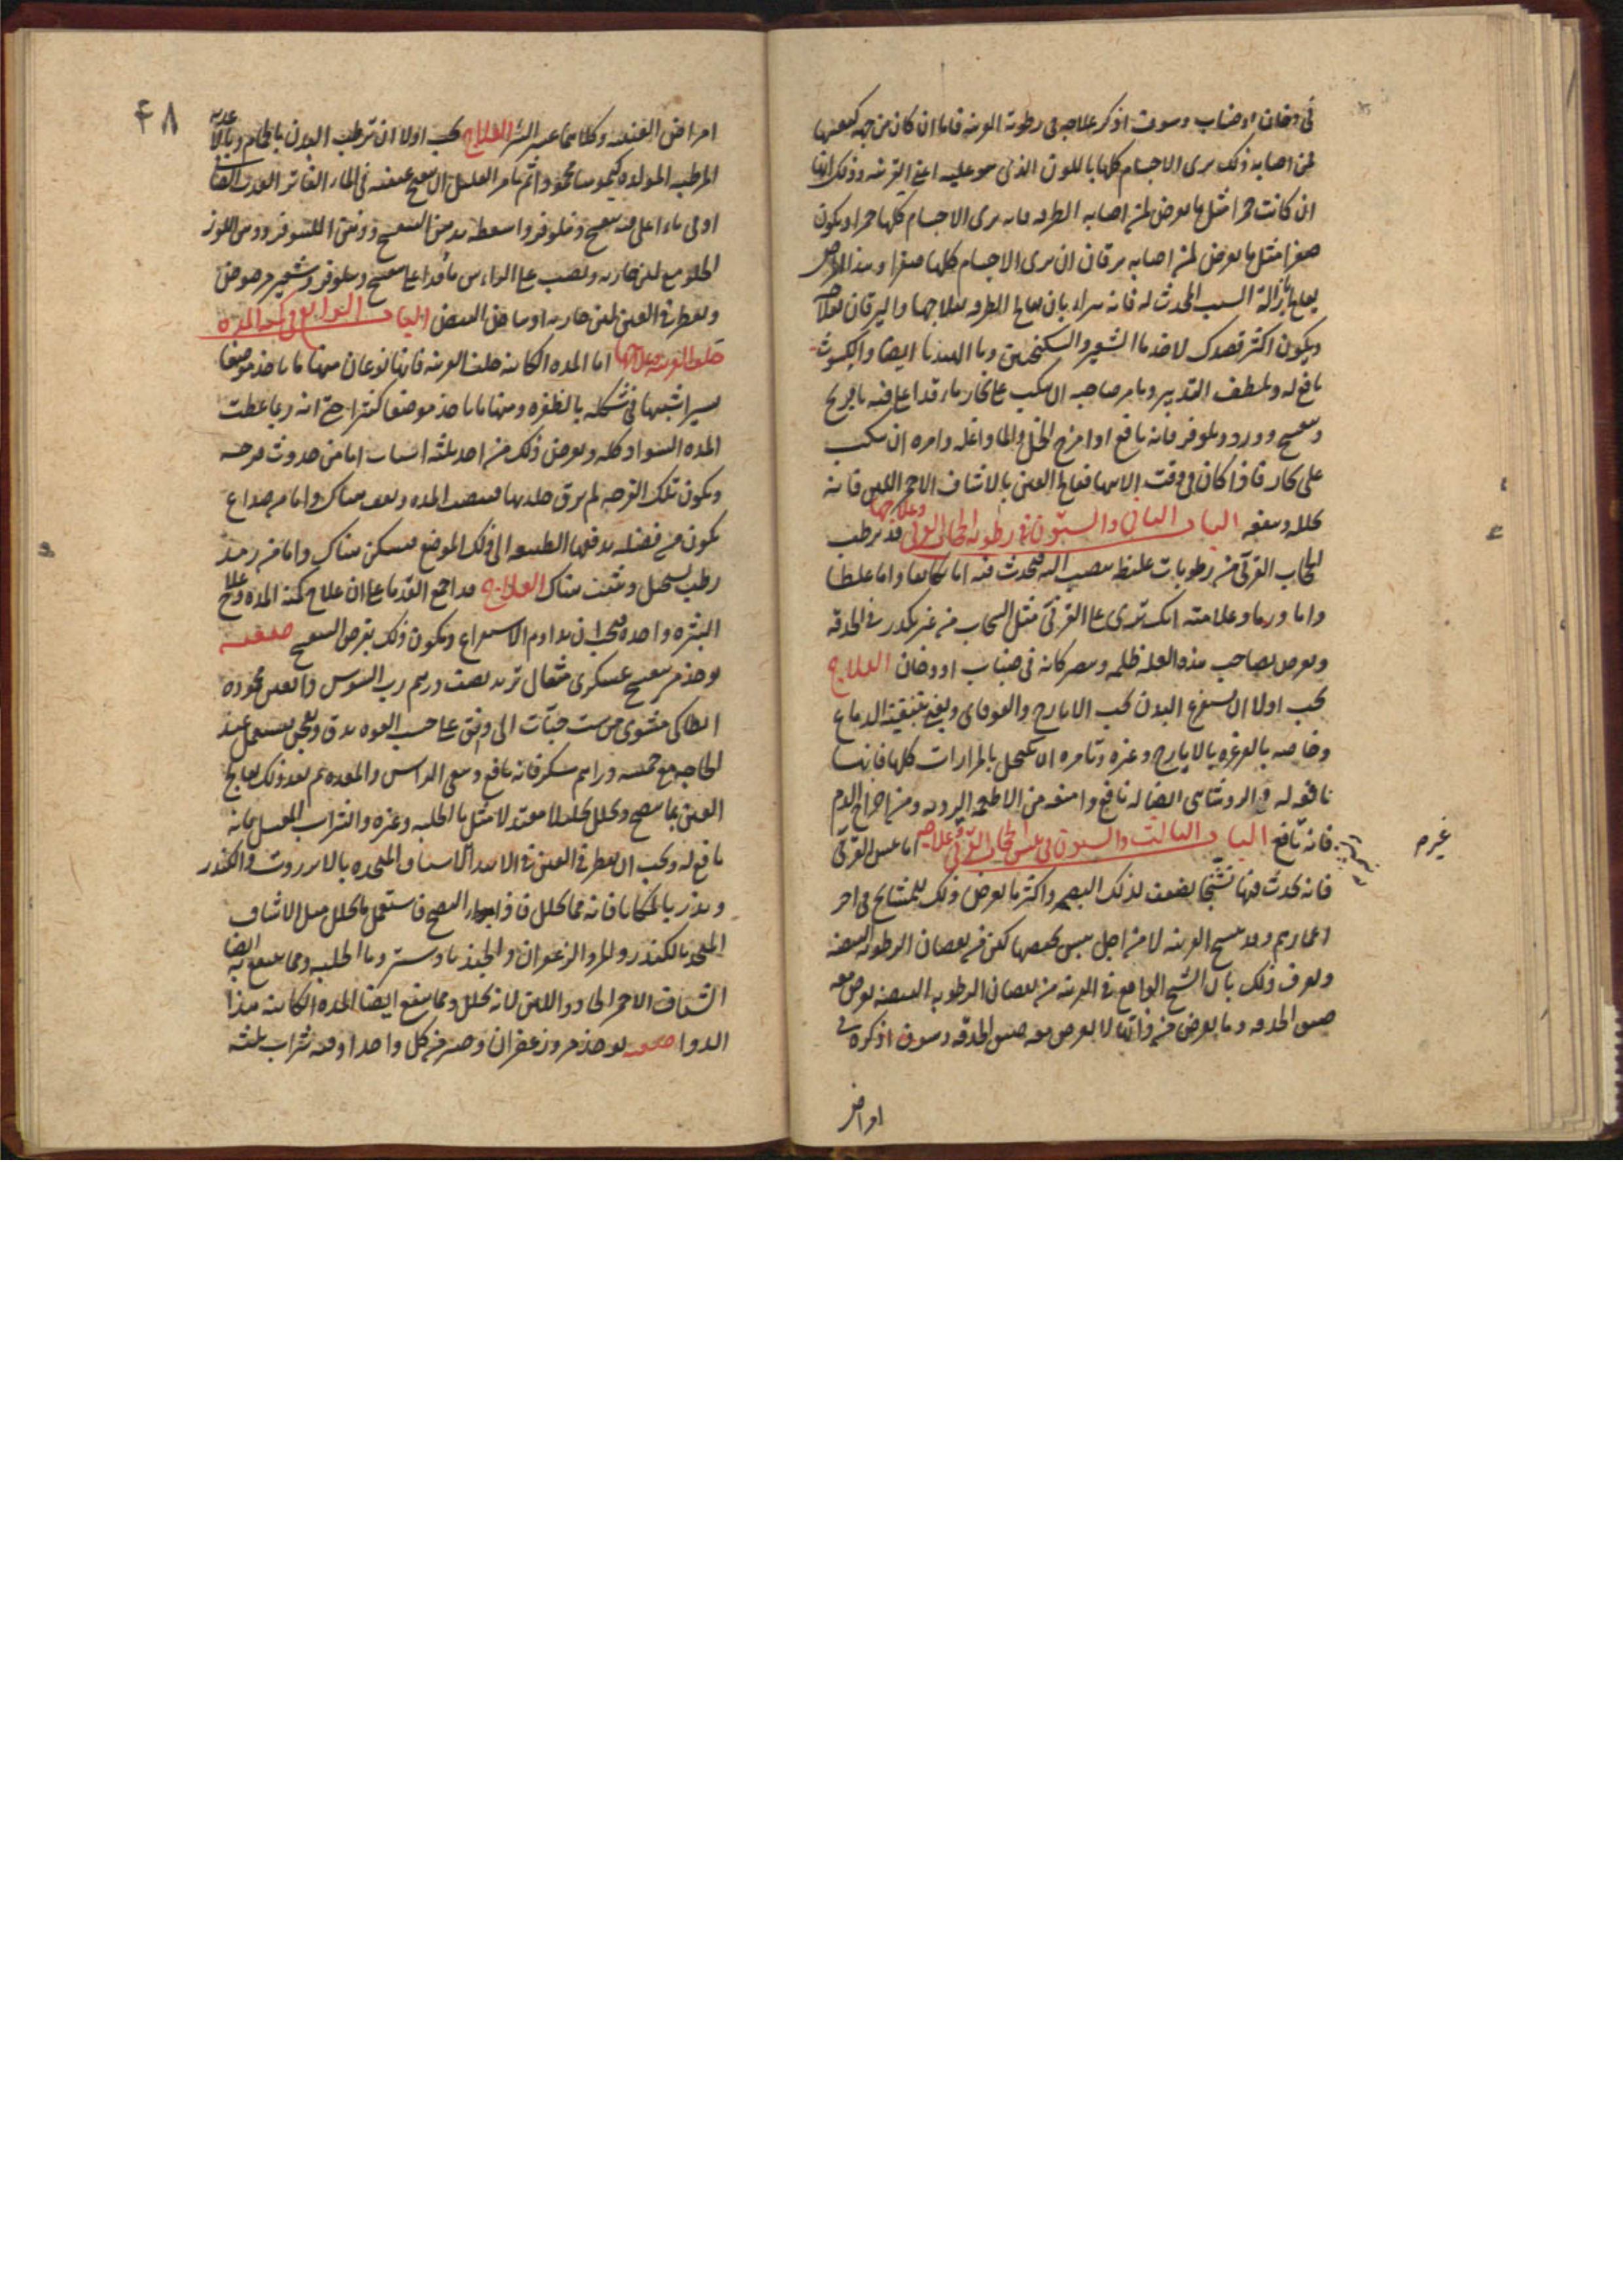 في دخان او ضباب وسوف اذكر علاجه في رطوبة القرنيه فاما ان كان من جهه كيفيتها
لمن اصابه ذلك يرى الاجسام كلها باللون الذي هو عليه اعني القرنيه وذلك انها
ان كانت حمرا مثل ما يعرض لمن اصابه الطرفه فانه يرى الاجسام كلها حمرا او يكون
صفرا مثل ما يعرض لمن اصابه يرقان ان يرى الاجسام كلها صفرا وهذا المرض
يعالج بازالة السبب المحدث له فانه يبرا بان يعالج الطرفه بعلاجها واليرقان بعلاجه
ويكون اكثر قصدك لاخذ ما الشعير والسكنجبين وما الهندبا ايضا والكشوث
نافع له ويلطف التدبير ويامر صاحبه ان يكب على بخار ماء قد اغلي فيه بابونج
وبنفسج وورد ونيلوفر فانه نافع او امزج الخل والما واغله وامره ان يكب
على بخاره فاذا كان في وقت الانتها فعالج العين بالاشياف الاحمر اللين فانه
يحلله وينفعه الباب الثاني والستون في رطوبه الحجاب القرني وعلاجها قد يرطب
الحجاب القرني من رطوبات غليظه تنصب اليه فيحدث فيه اما تكاثفا واما غلظا
واما ورما وعلامته انك ترى على القرني مثل السحاب من غير تكدر في الحدقه
ويعرض لصاحب هذه العله ظلمه ويبصر كانه في ضباب او دخان العلاج
يجب اولا ان يستفرغ البدن بحب الايارج والقوقاي ويعنى بتنقية الدماغ
وخاصه بالغرغره بالايارج وغيره وتامره ان يكتحل بالمرارات كلها فانها
نافعه له والروشنايي ايضا له نافع وامنعه من الاطعمه الرديه ومن اخراج الدم
فانه نافع الباب الثالث والستون في يبس الحجاب القرني وعلاجه اما يبس القرني
فانه يحدث فيها تشنجا يضعف لذلك البصر واكثر ما يعرض ذلك للمشايخ في اخر
اعمارهم وقد تتشنج القرنيه لا من اجل يبس يخصها لكن من نقصان الرطوبه البيضيه
ويعرف ذلك بان التشنج الواقع في القرنيه من نقصان الرطوبه البيضيه يعرض معه
ضيق الحدقه وما يعرض من ذاتها لا يعرض معه ضيق الحدقه وسوف اذكره في
امراض
٤٨
امراض العنبيه وكلاهما عسر البرء العلاج يجب اولا ان ترطب البدن بالحمام وبالاغذيه
المرطبه المولده كيموسا محمودا ثم تامر العليل ان يفتح عينيه في الماء الفاتر العذب ايضا
او في ماء اغلي فيه بنفسج ونيلوفر واسعطه بدهن البنفسج ودهن النيلوفر ودهن اللوز
الحلو مع لبن جاريه وتصب على الراس ماء قد اغلي بنفسج ونيلوفر وشعير مرضوض
وتقطر في العين لبن جاريه او بياض البيض الباب الرابع في كمنة المده
خلف القرنيه وعلاجها اما المده الكائنه خلف القرنيه فانها نوعان منها ما ياخذ موضعا
يسيرا شبيها في شكله بالظفره ومنها ما ياخذ موضعا كثيرا حتى انه ربما غطت
المده السواد كله ويعرض ذلك من احد ثلثه اسباب اما من حدوث قرحه
وتكون تلك القرحه لم يرق جلدها فتنصب المده وتقف هناك واما من صداع
يكون من فضله تدفعها الطبيعه الى ذلك الموضع فتسكن هناك واما من رمد
رطب ينحل ويثبت هناك العلاج قد اجمع القدما على ان علاج كمنة المده وعلاج
البثره واحده يجب ان يداوم الاستفراغ ويكون ذلك بقرص البنفسج صفته
يوخذ من بنفسج عسكري مثقال تربد نصف درهم رب السوس دانقين محموده
انطاكي مشوي من ست حبات الى دانق على حسب القوه يدق ويعجن يستعمل عند
الحاجه مع خمسه دراهم سكر فانه نافع وينقي الراس والمعده ثم بعد ذلك يعالج
العين بما ينضج ويحلل تحليلا معتدلا مثل ما الحلبه وغيره والشراب المعسل فانه
نافع له ويجب ان يقطر في العين في الابتدا الاشياف المتخذه بالانزروت والكندر
ويذر بالملكايا فانه مما يحلل فاذا ابتدا النضج فاستعمل ما يحلل مثل الاشياف
المتخذ بالكندر والمر والزعفران والجندبادستر وما الحلبه ومما ينتفع به ايضا
الشياف الاحمر الحاد واللين لانه يحلل ومما ينفع ايضا المده الكائنه هذا
الدوا صفته يوخذ مر وزعفران وصبر من كل واحد اوقيه شراب ثلثه